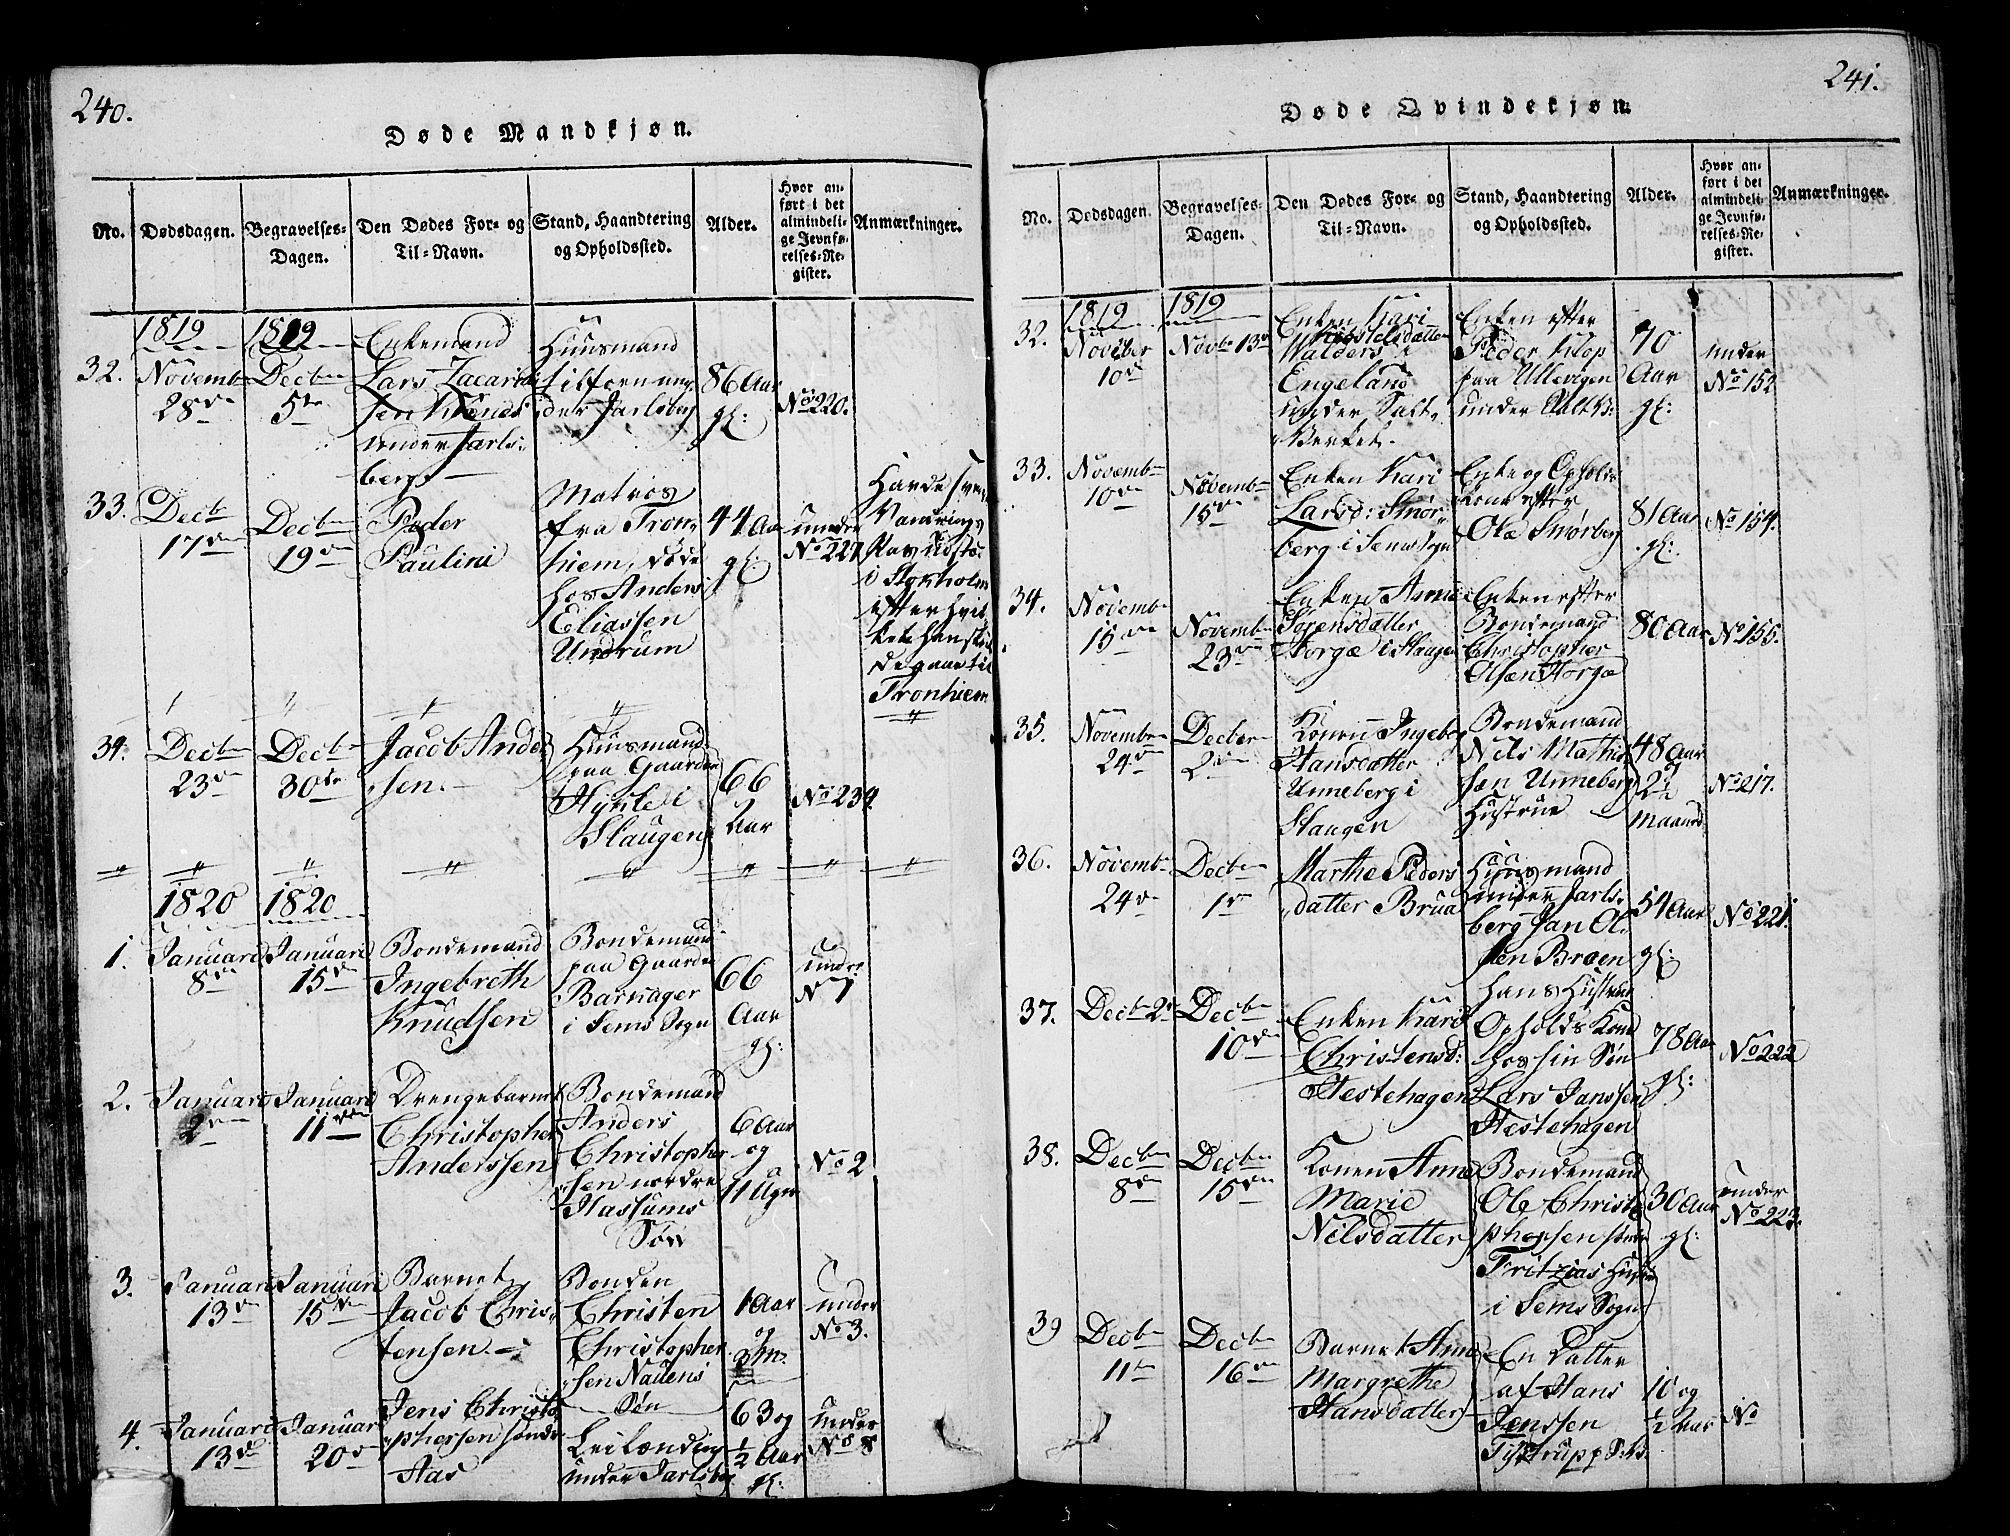 240.
Døde Mandkjøn.
No.
Dødsdagen.
Begravelses-
Dagen.
Den Dødes For- og
Til-Navn.
Stand, Haandtering
og Opholdssted.
Alder.
Hvor an-
ført i det
almindeli-
ge Jevnfø-
relses-Re-
gister.
Anmærkninger.
32.
1819
Novembr
28de
1819
Decbr
5te
Enkemand
Lars Zacaria
sen
under Jarls-
berg
Huusmand
der Jarlsberg
86 Aar
gl:
No 220.
33.
Decbr
17de
Decbr
19de
Peder
Paulini
Matros
fra Tron-
hiem, døde
hos Anders
Eliassen
Undrum
44 Aar
gl:
under
No 227
Havde
Vandrings
i Stokholm
efter hvil-
ket han
de gaae til
Tronhiem
34.
Decbr
23de
Decbr
30te
Jacob Ander
sen.
Huusmand
paa Gaarden
i
Slaugen
66
Aar
No 234.
1820
1820
1.
Januari
8de
Januari
15de
Bondemand
Ingebreth
Knudsen
Bondemand
paa Gaarden
Barkager
i Sems Sogn
66
Aar
gl:
under
No 1
2.
Januari
2den
Januari
11te
Drengebarnet
Christopher
Anderssen
Bondemand
Anders
Christopher
sen nordre
Hassums
Søn
6 Aar
og
11 Uger
No 2
3.
Januari
13de
Januari
15de
Barnet
Jacob Chris-
tensen.
Bonden
Christen
Christopher
sen Nauens
Søn
1 Aar
og
3 M.
under
No 3.
4.
Januari
13de
Januar
20de
Jens Christo
phersen søndre
Aas
Leilænding
under Jarlsberg
63 og
1/2 Aar
gl:
under
No 8
241.
Døde Qvindekjøn.
No.
Dødsdagen.
Begravelses-
Dagen.
Den Dødes For- og
Til-Navn.
Stand, Haandtering
og Opholdssted.
Alder.
Hvor an-
ført i det
almindeli-
ge Jevnfø-
relses-Re-
gister.
Anmærkninger.
32.
1819
November
10de
1819
Novbr 13de
Enken Kari
Walders i
Engeland
under Salt-
Verket.
Enken efter
Peder Klop
paa Ullevigen
under Salt V:
70
Aar
gl:
under
No 152
33.
Novembr
10de
Novembr
15de
Enken Kari
Larsd: Smør-
berg i Sems Sogn
Enke og Opholds
Kone efter
Ole Smørberg
81 Aar
gl:
No 154.
34.
Novembr
15de
Novembr
23de
Enken Anne
Sørensdatter
Horgæ i Slaugen
Enken efter
Bondemand
Christopher
Olsen Horgæ
80 Aar
No 155.
35.
Novembr
24de
Decbr
2den
Konen Ingebor
Hansdatter
Unneberg i
Slaugen
Bondemand
Nils Mathis
sen Unneberg
Hustrue
48 Aar
og
2
Maaned
No 217.
36.
Novembr
24de
Decbr
1de
Marthe Peders
datter Brua
Huusmand
under Jarls-
berg Jan Ol-
sen Braen
hans Hustrue
54 Aar
gl:
No 221.
37.
Decbr 2de
Decbr
10de
Enken Kari
Christensd:
Hestehagen
Opholds Kone
hos sin Søn
Lars Janssen
Hestehagen
78 Aar
gl:
No 222
38.
Decbr
8de
Decbr
15de
Konen Anne
Marie
Nilsdatter
Bondemand
Ole Christo
phersen
Fritzøas Hustrue
i Sems Sogn
30 Aar
gl:
under
No 223.
39
Decbr
11te
Decbr
16de
Barnet Anne
Margrethe
Hansdatter
En Datter
af Hans
Jenssen
10 og
1/2 Aar
No